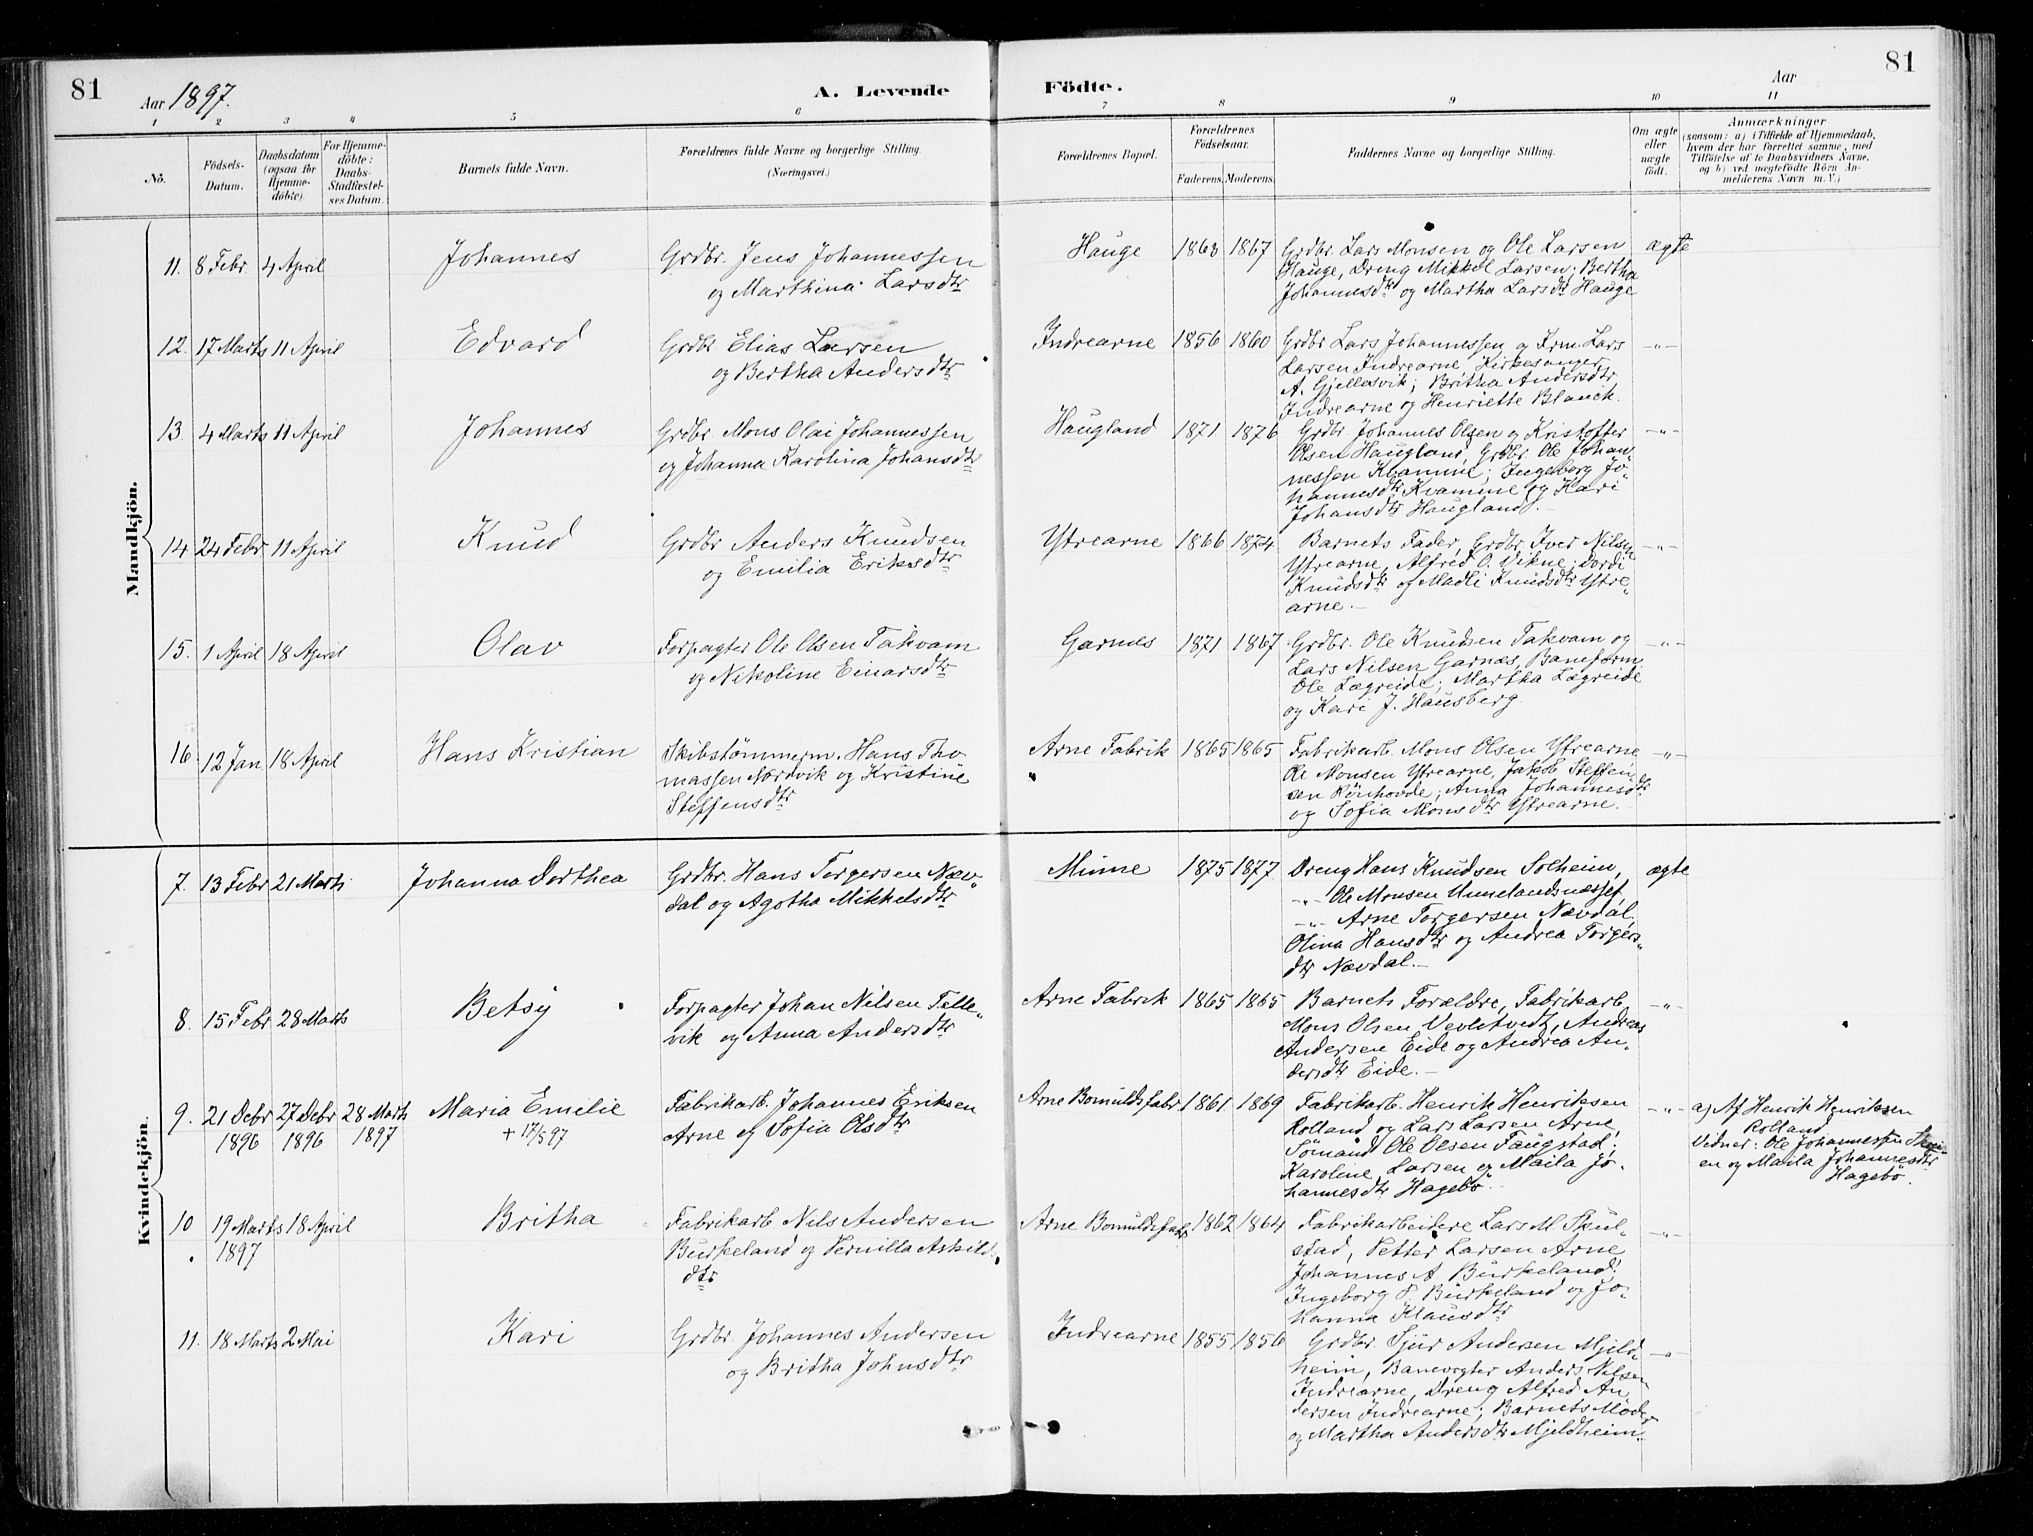 81
Aar 1897.
A. Levende
Födte.
Aar
81
1 2 3 4 5 6 7 8 9 10 11
No.
Födsels-
Datum.
Daabsdatum
(ogsaa for
Hjemme-
döbte).
For Hjemme-
döbte:
Daabs-
Stadfæstel-
ses Datum.
Barnets fulde Navn.
Forældrenes fulde Navne og borgerlige Stilling.
(Næringsvei.)
Forældrenes Bopæl.
Forældrenes
Födselsaar.
Faderens. Moderens.
Faddernes Navne og borgerlige Stilling.
Om ægte
eller
uægte
födt.
Anmærkninger
(saasom: a) i Tilfælde af Hjemmedaab,
hvem der har forrettet samme, med
Tilföielse af to Daabsvidners Navne,
og b) ved uægtefödte Börn An-
melderens Navn m. V.)
Mandkjön.
11. 8 Febr 4 April Johannes Grdbr. Jens Johannessen
og Marthina Larsdtr
Hauge 1863 1867 Grdbr. Lars Monsen og Ole Larsen ægte
Hauge, Dreng Mikkel Larsen; Bertha
Johannesdtr og Martha Larsdtr Hauge
12. 17 Marts 11 April Edvard Grdbr. Elias Larsen
og Bertha Andersdtr
Indrearne 1856 1860 Grdbr Lars Johannessen og Frm. Lars -"-
Larsen Indrearne, Kirkesanger
A. Gjellasvik; Britha Andersdtr
Indrearne og Henriette Blauck.
13. 4 Marts 11 April Johannes Grdbr. Mons Olai Johannessen
og Johanna Karolina Johansdtr
Haugland 1871 1876 Grdbr Johannes Olsen og Kristoffer -"-
Olsen Haugland, Grdbr. Ole Johan-
nessen Kvamme; Ingeborg Jo-
hannesdtr Kvamme og Kari
Johansdtr Haugland.
14 24 Febr 11 April Knud Grdbr Anders Knudsen
og Emilia Eriksdtr
Ytrearne 1866 1874 Barnets Fader, Grdbr. Iver Nilsen -"-
Ytrearne, Alfred O. Vikne; Dordi
Knudsdtr og Madli Knudsdtr Ytre-
arne.-
15. 1 April 18 April Olav Forpagter Ole Olsen Takvam
og Nikoline Einarsdtr
Garnes 1871 1867 Grdbr. Ole Knudsen Takvam og -"-
Lars Nilsen Garnæs, Baneform.
Ole Lægreide; Martha Lægreide
og Kari J. Hausberg.
16. 12 Jan 18 April Hans Kristian Skibstømmerm. Hans Tho-
massen Nordvik og Kristine
Steffensdtr
Arne Fabrik 1865 1865 Fabrikarb. Mons Olsen Ytrearne -"-
Ole Monsen Ytrearne, Jakob Steffen-
sen Rönhovde; Anna Johannesdtr
og Sofia Monsdtr Ytrearne.
Kvindekjön.
7. 13 Febr 21 Marts Johanna Dorthea Grdbr. Hans Torgersen Næv-
dal og Agotha Mikkelsdtr
Minne 1875 1877 Dreng Hans Knudsen Solheim, ægte
-"- Ole Monsen Unnelandsnesset
-"- Arne Torgersen Nævdal,
Olina Hansdtr og Andrea Torgers-
dtr Nævdal.-
8. 15 Febr 28 Marts Betsy Forpagter Johan Nilsen Telle-
vik og Anna Andersdtr
Arne Fabrik 1865 1865 Barnets Forældre, Fabrikarb. -"-
Mons Olsen Vevletvedt, Andreas
Andersen Eide og Andrea An-
dersdtr Eide.-
9. 21 Debr 27 Debr 28 Marts Maria Emelie Fabrikarb. Johannes Eriksen
1896 1896 1897 + 17/5 97 Arne og Sofia Olsdtr
Arne Bomuldsfabr. 1861 1869 Fabrikarb. Henrik Henriksen -"- a) Af Henrik Henriksen
Rolland og Lars Larsen Arne, Rolland
Sömand Ole Olsen Faugstad; Vidner: Ole Johannessen
Karoline Larsen og Maila Jo- en og Maila Johannesdtr
hannesdtr Hagebö. Hagebö.
10 19 Marts 18 April Britha Fabrikarb Nils Andersen
1897 Burkeland og Pernilla Askilds-
dtr
Arne Bomuldsfabr. 1862 1864 Fabrikarbeidere Lars M. Skul- -"-
stad, Petter Larsen Arne
Johannes A. Burkeland;
Ingeborg P. Burkeland og Jo-
hanna Klausdtr
11. 18 Marts 2 Mai Kari Grdbr. Johannes Andersen
og Britha Johnsdtr
Indrearne 1855 1856 Grdbr. Sjur Andersen Mjeld- -"-
heim, Banevogter Anders Nilsen
Indrearne, Dreng Alfred An
dersen Indrearne; Barnets Moder
og Martha Andersdtr Mjeldheim.